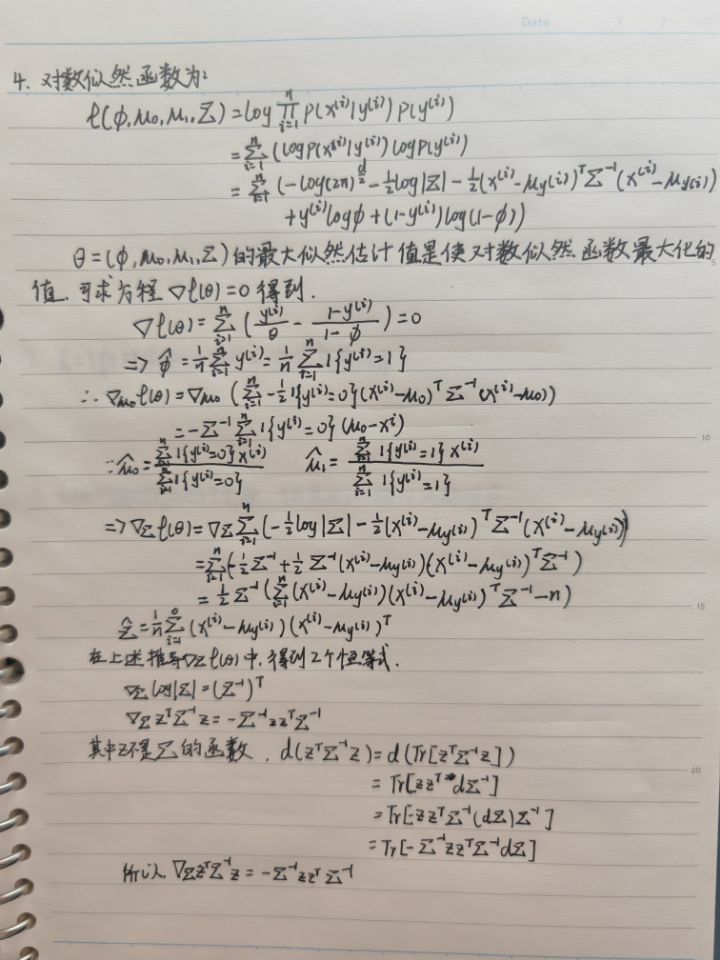 Date / /
4. 对数似然函数为:
ℓ(ϕ,μ₀,μ₁,Σ)=log ∏_{i=1}^{n} p(x⁽ⁱ⁾|y⁽ⁱ⁾)p(y⁽ⁱ⁾)
=∑_{i=1}^{n} (log p(x⁽ⁱ⁾|y⁽ⁱ⁾) log p(y⁽ⁱ⁾)
=∑_{i=1}^{n} (-log(2π)^{d/2} - ½log|Σ| - ½(x⁽ⁱ⁾-μ_{y⁽ⁱ⁾})ᵀΣ⁻¹(x⁽ⁱ⁾-μ_{y⁽ⁱ⁾})
+y⁽ⁱ⁾logϕ+(1-y⁽ⁱ⁾)log(1-ϕ))
θ=(ϕ,μ₀,μ₁,Σ)的最大似然估计值是使对数似然函数最大化的
值.可求方程∇ℓ(θ)=0得到.
∇ℓ(θ)=∑_{i=1}^{n} (y⁽ⁱ⁾/θ - (1-y⁽ⁱ⁾)/(1-ϕ))=0
=> ϕ̂=1/n ∑_{i=1}^{n} y⁽ⁱ⁾=1/n ∑_{i=1}^{n} 1{y⁽ⁱ⁾=1}
∴∇_{μ₀}ℓ(θ)=∇_{μ₀}(∑_{i=1}^{n} -½1{y⁽ⁱ⁾=0}(x⁽ⁱ⁾-μ₀)ᵀΣ⁻¹(x⁽ⁱ⁾-μ₀))
=-Σ⁻¹∑_{i=1}^{n} 1{y⁽ⁱ⁾=0}(μ₀-xⁱ)
∴μ̂₀=∑_{i=1}^{n}1{y⁽ⁱ⁾=0}x⁽ⁱ⁾ / ∑_{i=1}^{n}1{y⁽ⁱ⁾=0} μ̂₁=∑_{i=1}^{n}1{y⁽ⁱ⁾=1}x⁽ⁱ⁾ / ∑_{i=1}^{n}1{y⁽ⁱ⁾=1}
10
=>∇_Σℓ(θ)=∇_Σ∑_{i=1}^{n}(-½log|Σ|-½(x⁽ⁱ⁾-μ_{y⁽ⁱ⁾})ᵀΣ⁻¹(x⁽ⁱ⁾-μ_{y⁽ⁱ⁾}))
=∑_{i=1}^{n}(-½Σ⁻¹+½Σ⁻¹(x⁽ⁱ⁾-μ_{y⁽ⁱ⁾})(x⁽ⁱ⁾-μ_{y⁽ⁱ⁾})ᵀΣ⁻¹)
=½Σ⁻¹(∑_{i=1}^{n}(x⁽ⁱ⁾-μ_{y⁽ⁱ⁾})(x⁽ⁱ⁾-μ_{y⁽ⁱ⁾})ᵀΣ⁻¹-n)
15
Σ̂=1/n ∑_{i=1}^{n}(x⁽ⁱ⁾-μ_{y⁽ⁱ⁾})(x⁽ⁱ⁾-μ_{y⁽ⁱ⁾})ᵀ
在上述推导∇_Σℓ(θ)中,得到2个恒等式.
∇_Σ log|Σ|=(Σ⁻¹)ᵀ
∇_Σ zᵀΣ⁻¹z=-Σ⁻¹zzᵀΣ⁻¹
其中z不是Σ的函数. d(zᵀΣ⁻¹z)=d(Tr[zᵀΣ⁻¹z])
20
=Tr[zzᵀdΣ⁻¹]
=Tr[-zzᵀΣ⁻¹(dΣ)Σ⁻¹]
=Tr[-Σ⁻¹zzᵀΣ⁻¹dΣ]
所以,∇_ΣzᵀΣ⁻¹z=-Σ⁻¹zzᵀΣ⁻¹